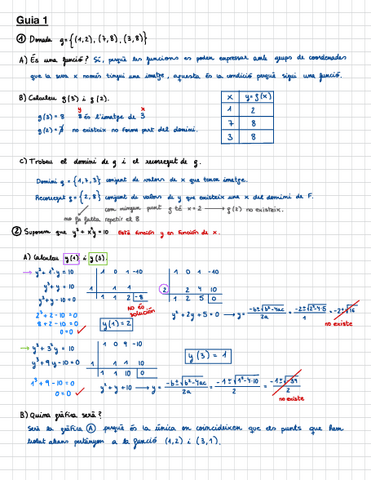 Guia 1
① Donada g={(1,2), (7,8), (3,8)}
A) És una funció? Sí, perquè les funcions es poden expressar amb grups de coordenades
que la seva x només tingui una imatge, aquesta és la condició perquè sigui una funció.
B) Calculeu g(3) i g(2).
x y=g(x)
1 2
7 8
3 8
y x
g(3) = 8 8 és l'imatge de 3
g(2) = ∄ no existeix no forma part del domini.
C) Trobeu el domini de g i el recorregut de g.
Domini g = {1,7,3} conjunt de valors de x que tenen imatge.
Recorregut g = {2,8} conjunt de valors de y que existeix una x del domini de F.
com ningun punt g té x=2 → g(2) no existeix.
no fa falta repetir el 8
② Suposem que y³+x²y=10 Està funció y en funció de x.
A) Calculeu y(1) i y(3).
→ y³+1²·y=10
y³+y=10
y³+y-10=0
2³+2-10=0
8+2-10=0
0=0 ✓
1 0 1 -10
1 1 1 2
1 1 2 -8
no és solución
y(1)=2
1 0 1 -10
2 2 4 10
1 2 5 0
y²+2y+5=0 → y= -b±√b²-4ac / 2a = -2±√2²-4·5 / 1 = -2±√-16
no existe
→ y³+3²y=10
y³+9y-10=0
1³+9-10=0
0=0 ✓
1 0 9 -10
1 1 1 10
1 1 10 0
y(3)=1
y²+y+10 → y= -b±√b²-4ac / 2a = -1±√1²-4·10 / 2 = -1±√-39 / 2
no existe
B) Quina gràfica serà?
Serà la gràfica Ⓐ perquè és la única on coincideixen que els punts que hem
trobat abans pertanyen a la funció (1,2) i (3,1).